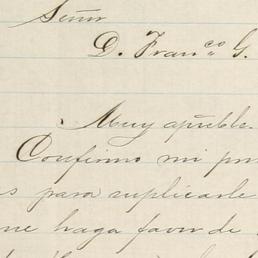 Señor
D. Franco G.
Muy apreble.
Confirmo mi
s para suplicarle
me haga favor de